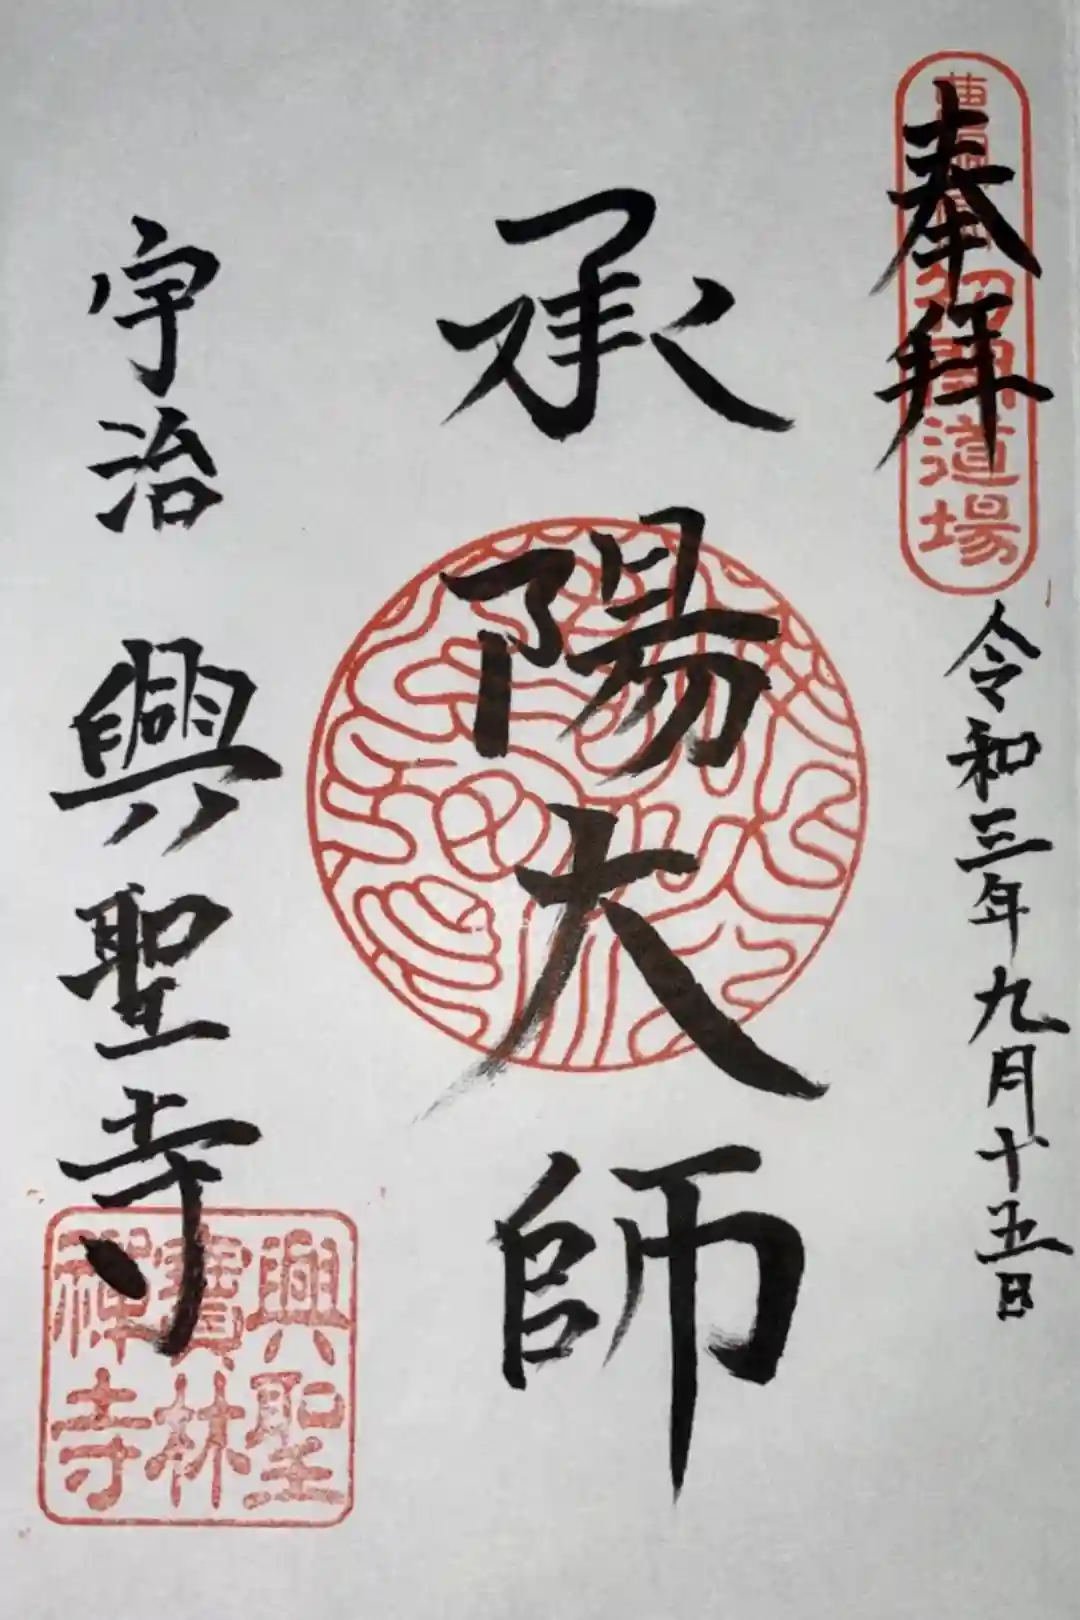 奉拝
道場
令和三年九月十五日
承陽大師
宇治
興聖寺
興聖
寶林
禅寺